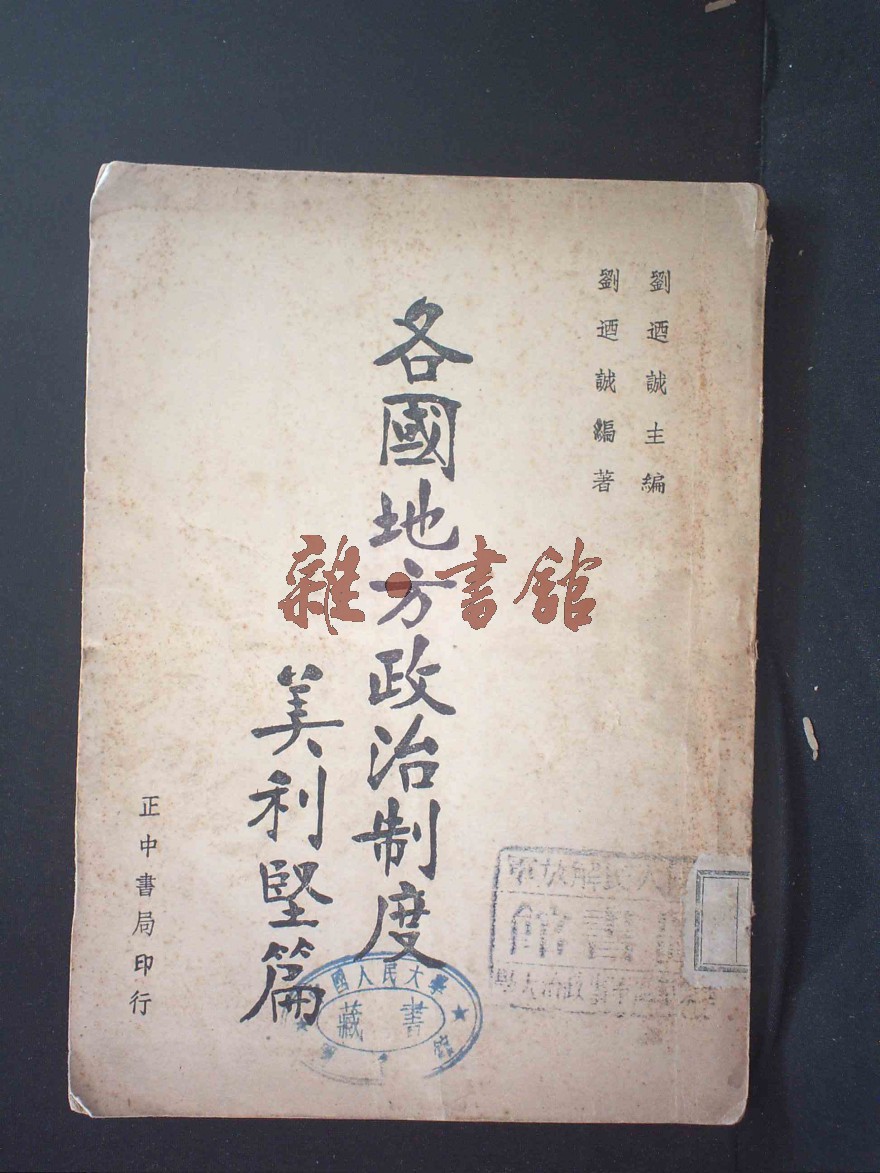 劉迺誠主編
劉迺誠編著
各國地方政治制度
美利堅篇
正中書局印行
雜·書館
國人民大學
藏書
人民解放軍
書館